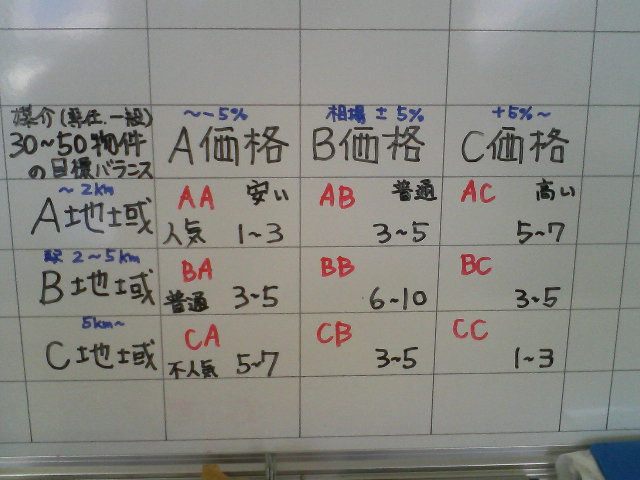 媒介(専任.一般)
30~50物件
の目標バランス
~-5%
A価格
相場±5%
B価格
+5%~
C価格
~2km
A地域
AA 安い
人気 1~3
AB 普通
3~5
AC 高い
5~7
駅2~5km
B地域
BA
普通 3~5
BB
6~10
BC
3~5
5km~
C地域
CA
不人気 5~7
CB
3~5
CC
1~3